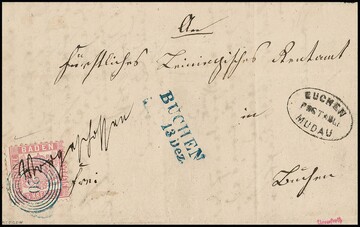 An
Fürstliches Leiningisches Rentamt
in
Buchen
frei
BUCHEN
13 Dez.
BUCHEN
MUDAU
BADEN